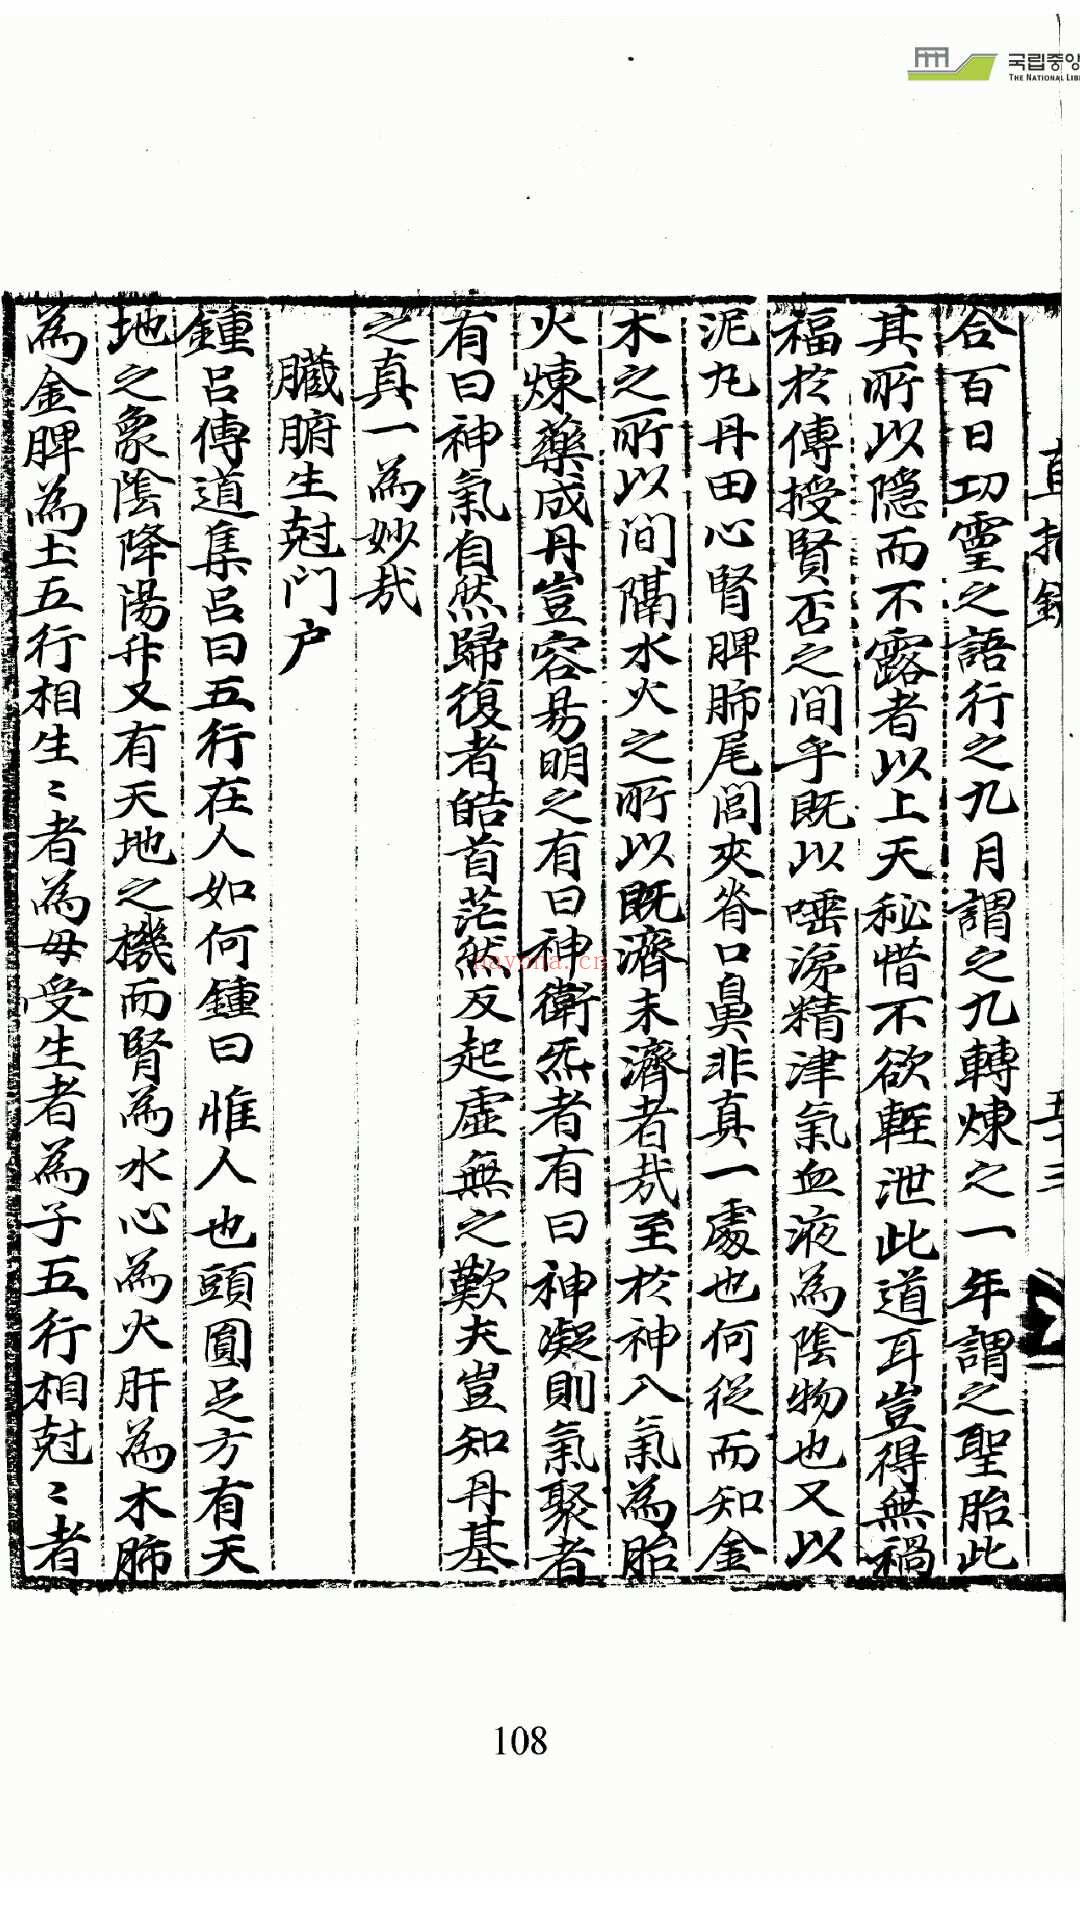 国립중앙
THE NATIONAL LIB
直指錄
五十三
合百日功靈之語行之九月謂之九轉煉之一年謂之聖胎此
其所以隱而不露者以上天秘惜不欲輕泄此道耳豈得無禍
福於傳授賢否之間乎既以唾涕精津氣血液為陰物也又以
泥丸丹田心腎脾肺尾閭夾脊口鼻非真一處也何従而知金
木之所以间隔水火之所以既濟未濟者㢤至於神入氣為胎
火煉藥成丹豈容易明之有曰神衛炁者有曰神凝則氣聚者
有曰神氣自然歸復者皓首茫然反起虛無之歎夫豈知丹基
之真一為妙㢤
臓腑生尅门户
鍾呂傳道集呂曰五行在人如何鍾曰惟人也頭圓足方有天
地之象陰降陽升又有天地之機而腎為水心為火肝為木肺
為金脾為土五行相生〻者為母受生者為子五行相尅〻者
hayona.cn
108